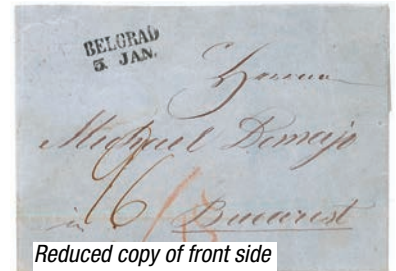 BELGRAD
5. JAN.
Herrn
Michael Demajo
16
in Bucarest
Reduced copy of front side